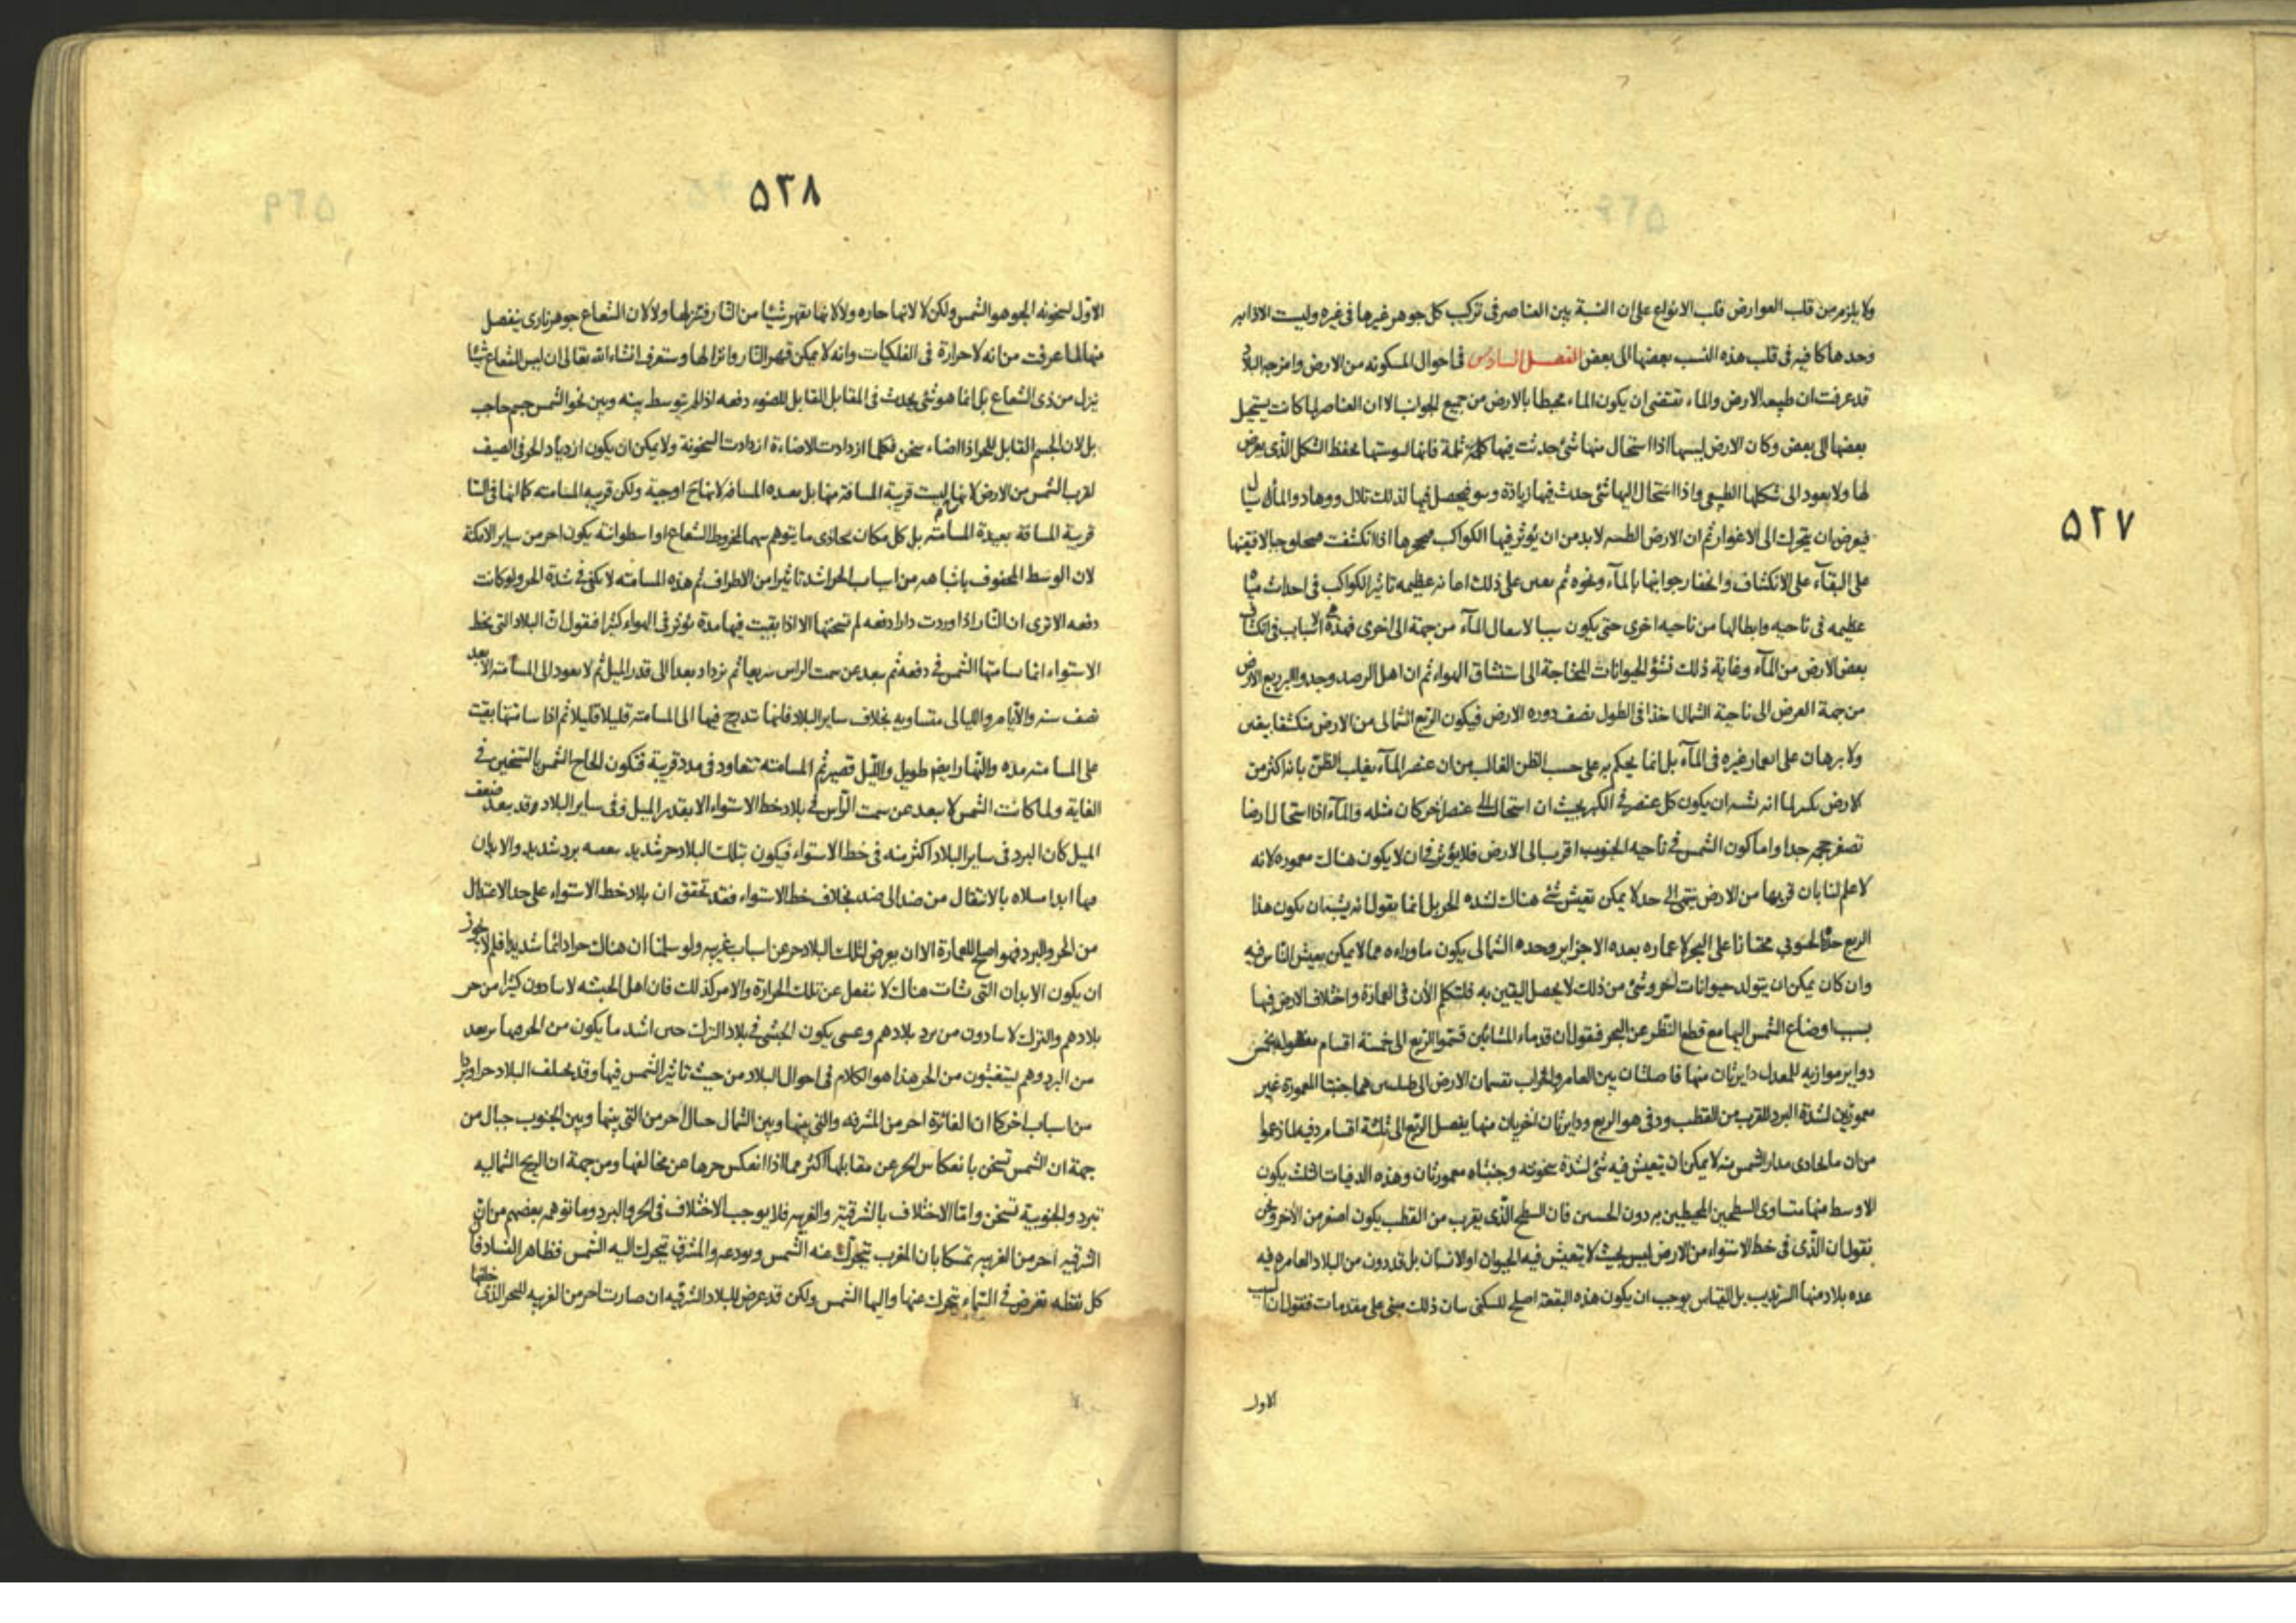 ٥٢٧
ولا يلزم من قلب العوارض قلب الانواع على ان النسبة بين العناصر فى تركيب كل جوهر غيرها فى غيره وليست الاذابه
وحدها كافيه فى قلب هذه النسب بعضها الى بعض الفصل السادس فى احوال المسكونه من الارض وامزجه البلاد
قد عرفت ان طبيعه الارض والماء تقتضى ان يكون الماء محيطا بالارض من جميع الجوانب الا ان العناصر لما كانت يستحيل
بعضها الى بعض وكان الارض ليبسها اذا استحال منها شئ حدثت فيها ثلمة فانها ليبوستها يحفظ الشكل الذى يعرض
لها ولا يعود الى شكلها الطبيعى واذا استحال اليها شئ حدث فيها زيادة فيحصل فيها لذلك تلال ووهاد والماء سيال
فيعرض ان يتحرك الى الاغوار ثم ان الارض لا بد من ان يؤثر فيها الكواكب اذا انكشفت
على البقآء على الانكشاف وانحفار جوانبها بالمآء ونحوه ثم يعين على ذلك عظيمه تاثير الكواكب فى احداث مياه
عظيمه فى ناحيه وابطالها من ناحيه اخرى حتى يكون سببا لانتقال المآء من جهة الى اخرى فهذه اسباب فى انكشاف
بعض الارض من المآء وغاية ذلك نشؤ الحيوانات المحتاجة الى استنشاق الهواء ثم ان اهل الرصد وجدوا البر ربع الارض
من جهة العرض الى ناحية الشمال اخذا فى الطول نصف دوره الارض فيكون الربع الشمالى من الارض منكشفا
ولا برهان على انغمار غيره فى المآء بل انما يحكم به على حسب الظن الغالب من ان عنصر المآء يغلب الظن بانه اكثر من
الارض ان يكون كل عنصر فى الكم بحيث ان استحال الى عنصر اخر كان مثله والمآء اذا استحال ارضا
تصغر حجمه جدا واما كون الشمس فى ناحيه الجنوب اقرب الى الارض فلا يؤثر فى ان لا يكون هناك معموره لانه
لا علم لنا بان قربها من الارض ينتهى الى حد لا يمكن تعيش شئ هناك لشده الحر بل انما نقول انه يشبه ان يكون هذا
الربع على البحر لا عماره بعده الا جزاير وحده الشمالى يكون ما وراءه مما لا يمكن تعيش الناس فيه
وان كان يمكن ان يتولد حيوانات اخر وشئ من ذلك لا يحصل اليقين به فلنتكلم الآن فى العمارة واختلاف الارض فيها
بسبب اوضاع الشمس اليها مع قطع النظر عن البحر فنقول ان قدماء المشائين قسموا الربع الى خمسة اقسام بخمس
دواير موازيه للمعدل دايرتان منها فاصلتان بين العامر والخراب تقسمان الارض هما جنبتا المعمورة غير
معمورتين لشدة البرد للقرب من القطب ودايرتان اخريان منها يفصل الربع الى ثلثة اقسام
من ان ما يحاذى مدار الشمس منه لا يمكن ان يتعيش فيه شئ لشدة سخونته وجنبتاه معمورتان وهذه الدفيات الثلث يكون
الاوسط منها متساوى السطحين المحيطين به دون الجنبتين فان السطح الذى يقرب من القطب يكون اصغر من الآخر ونحن
نقول ان الذى فى خط الاستواء من الارض ليس بحيث لا يتعيش فيه الحيوان او الانسان بل قد دون من البلاد العامره فيه
عده بلاد منها السرنديب بل القياس يوجب ان يكون هذه البقعة اصلح للسكنى بيان ذلك مبنى على مقدمات فنقول ان السبب
الاول
٥٢٨
الاول لسخونه الجو هو الشمس ولكن لا لانها حاره ولا لانها تقهر شيئا من النار فتنزلها ولا لان الشعاع جوهر نارى ينفصل
منها لما عرفت من انه لا حرارة فى الفلكيات وانه لا يمكن قهر النار وانزالها وستعرف انشاء الله تعالى ان ليس للشعاع شيئا
ينزل من ذى الشعاع بل انما هو شئ يحدث فى المقابل القابل للضوء دفعه اذا لم يتوسط بينه وبين نحو الشمس جسم حاجب
بل لان الجسم القابل للحر اذا اضاء سخن فكلما ازدادت الاضاءة ازدادت السخونة ولا يمكن ان يكون ازدياد الحر فى الصيف
لقرب الشمس من الارض لانها ليست قريبة المسافة منها بل بعيده المسافه لانها ح اوجية ولكن قريبه المسامته كما انها فى الشتا
قريبة المسافة بعيدة المسامته بل كل مكان يحاذى ما يتوهم سهما لمخروط الشعاع او اسطوانته يكون احر من ساير الامكنة
لان الوسط المحفوف باشباهه من اسباب الحر اشد تاثيرا من الاطراف ثم هذه المسامته لا يكفى فى شدة الحر ولو كانت
دفعه الا ترى ان النار اذا وردت دارا دفعه لم تسخنها الا اذا بقيت فيها مدة يؤثر فى الهواء كثيرا فنقول ان البلاد التى بخط
الاستواء انما يسامتها الشمس فى دفعه ثم يبعد عن سمت الراس سريعا ثم يزداد بعدا الى قدر الميل ثم لا يعود الى المسامته الا بعد
نصف سنه والايام والليالى متساويه بخلاف ساير البلاد فانها تدرج فيها الى المسامته قليلا قليلا ثم اذا سامتتها بقيت
على المسامته مده والنهار ايضا طويل والليل قصير ثم المسامته تتعاود فى مدد قريبة فتكون الحاح الشمس بالتسخين فى
الغاية ولما كانت الشمس لا يبعد عن سمت الرأس فى بلاد خط الاستواء الا بقدر الميل وفى ساير البلاد وقد يبعد ضعف
الميل كان البرد فى ساير البلاد اكثر منه فى خط الاستواء فيكون بتلك البلاد حر شديد يعقبه برد شديد والابدان
فيها ابدا مبتلاه بالانتقال من ضد الى ضد بخلاف خط الاستواء فقد تحقق ان بلاد خط الاستواء على حد الاعتدال
من الحر والبرد فهو اصلح للعمارة الا ان يعرض لتلك البلاد حر عن اسباب غريبه ولو سلمنا ان هناك حرا دائما شديدا فلم لا يجوز
ان يكون الابدان التى نشأت هناك لا تنفعل عن تلك الحرارة والامر كذلك فان اهل الحبشه لا يتأذون كثيرا من حر
بلادهم والترك لا يتأذون من برد بلادهم وعسى يكون الحبشى فى بلاد الترك حين اشد ما يكون من الحر بها يرتعد
من البرد وهم يستغيثون من الحر هذا هو الكلام فى احوال البلاد من حيث تاثير الشمس فيها وقد يختلف البلاد حرا وبردا
من اسباب اخر كما ان الغائرة احر من المشرفه والتى بينها وبين الشمال جبال احر من التى بينها وبين الجنوب جبال من
جهة ان الشمس تسخن بانعكاس الحر عن مقابلها اكثر مما اذا انعكس حرها عن مخالفها ومن جهة ان الريح الشماليه
تبرد والجنوبية تسخن واما الاختلاف بالشرقيه والغربيه فلا يوجب الاختلاف فى الحر والبرد وما توهمه بعضهم من ان
الشرقيه احر من الغربيه تمسكا بان المغرب تتحرك عنه الشمس ويودعه والمشرق تتحرك اليه الشمس فظاهر الفساد فان
كل نقطه تفرض فى السماء تتحرك عنها واليها الشمس ولكن قد عرض للبلاد الشرقيه ان صارت احر من الغربيه للبحر الذى خلفها